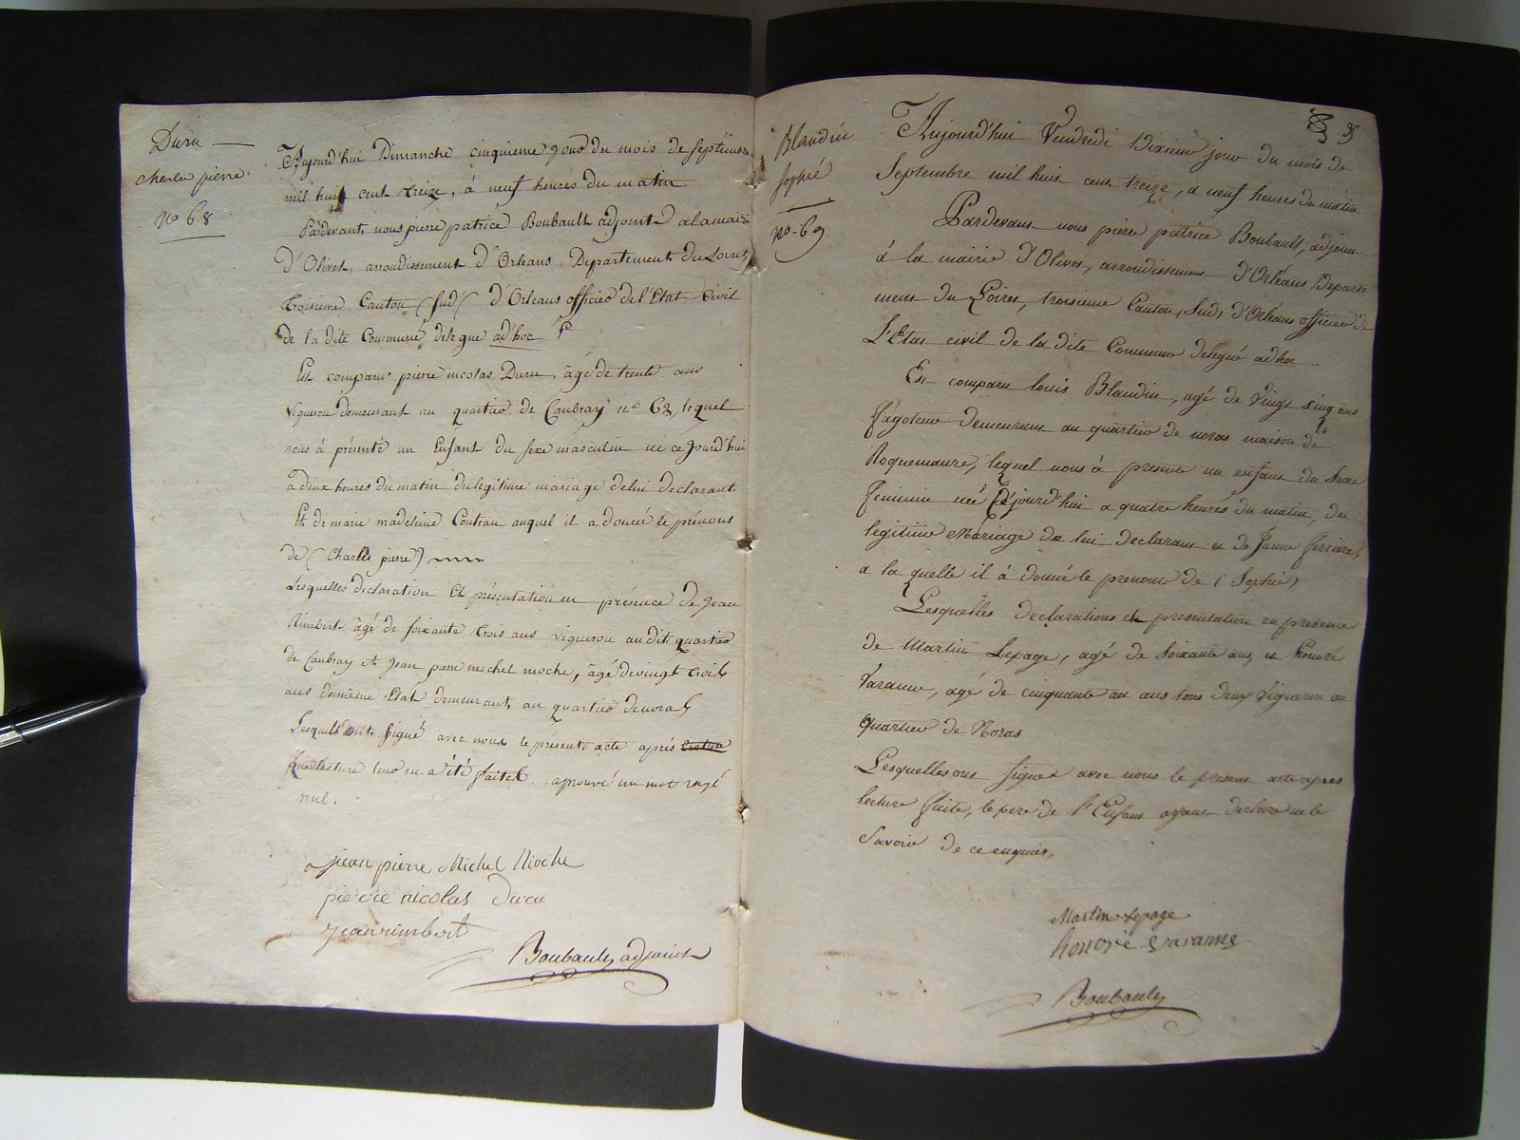 Duru
Charles pierre.
No 68
Aujourd'hui Dimanche cinquieme jour du mois de Septembre
mil huit cent treize, à neuf heures du matin
Pardevant nous pierre patrice Boubault adjoint a la mairie
d'Olivet, arrondissement d'Orleans, Departement du Loiret,
troisieme Canton (sud) d'Orleans officier de l'Etat Civil
de la dite Commune délégué ad hoc
Est comparu pierre nicolas Duru, âgé de trente ans
vigneron demeurant au quartier de Caubray no 68, lequel
nous à présenté un Enfant du sexe masculin né ce Jourd'hui
à deux heures du matin du legitime mariage de lui declarant
Et de marie madeleine Couteau auquel il a donné le prénoms
de (Charles pierre)
Lesquelles declaration Et présentation en présence de Jean
Rimbert âgé de soixante trois ans vigneron au dit quartier
de Caubray et Jean pierre michel Rioche, âgé de vingt trois
ans du même Etat demeurant au quartier de noras
Lesquels ont signé avec nous le présent acte après
que lecture leur en a été faite. aprouvé un mot rayé
nul.
jean pierre Michel Rioche
pierre nicolas duru
jean rimbert
Boubault adjoint
Blandin
Sophie
No. 69
Aujourd'hui Vendredi Dixieme jour du mois de
Septembre mil huit cent treize, a neuf heures du matin
Pardevant nous pierre patrice Boubault, adjoint
à la mairie d'Olivet, arrondissement d'Orléans Departe
ment du Loiret, troisieme Canton, Sud, d'Orléans officier de
L'Etat civil de la dite Commune delegué ad hoc
Est comparu louis Blandin, agé de Vingt cinq ans
fagoteur demeurant au quartier de noras maison de la
Roquemaure, lequel nous à presenté un enfant du Sexe
feminin né Cejourd'hui a quatre heures du matin, du
legitime Mariage de lui declarant et de Jeanne
a la quelle il à donné le prenoms de (Sophie)
Lesquelles declarations et presentation en presence
de Martin Lepage, agé de Soixante ans, et honoré
Varanne, agé de cinquante un ans tous deux Vigneron au
quartier de Noras
Lesquelles ont signés avec nous le present acte apres
lecture faite, le pere de l'Enfant ayant declaré ne le
Savoir de ce enquis.
Martin Lepage
honoré varanne
Boubault